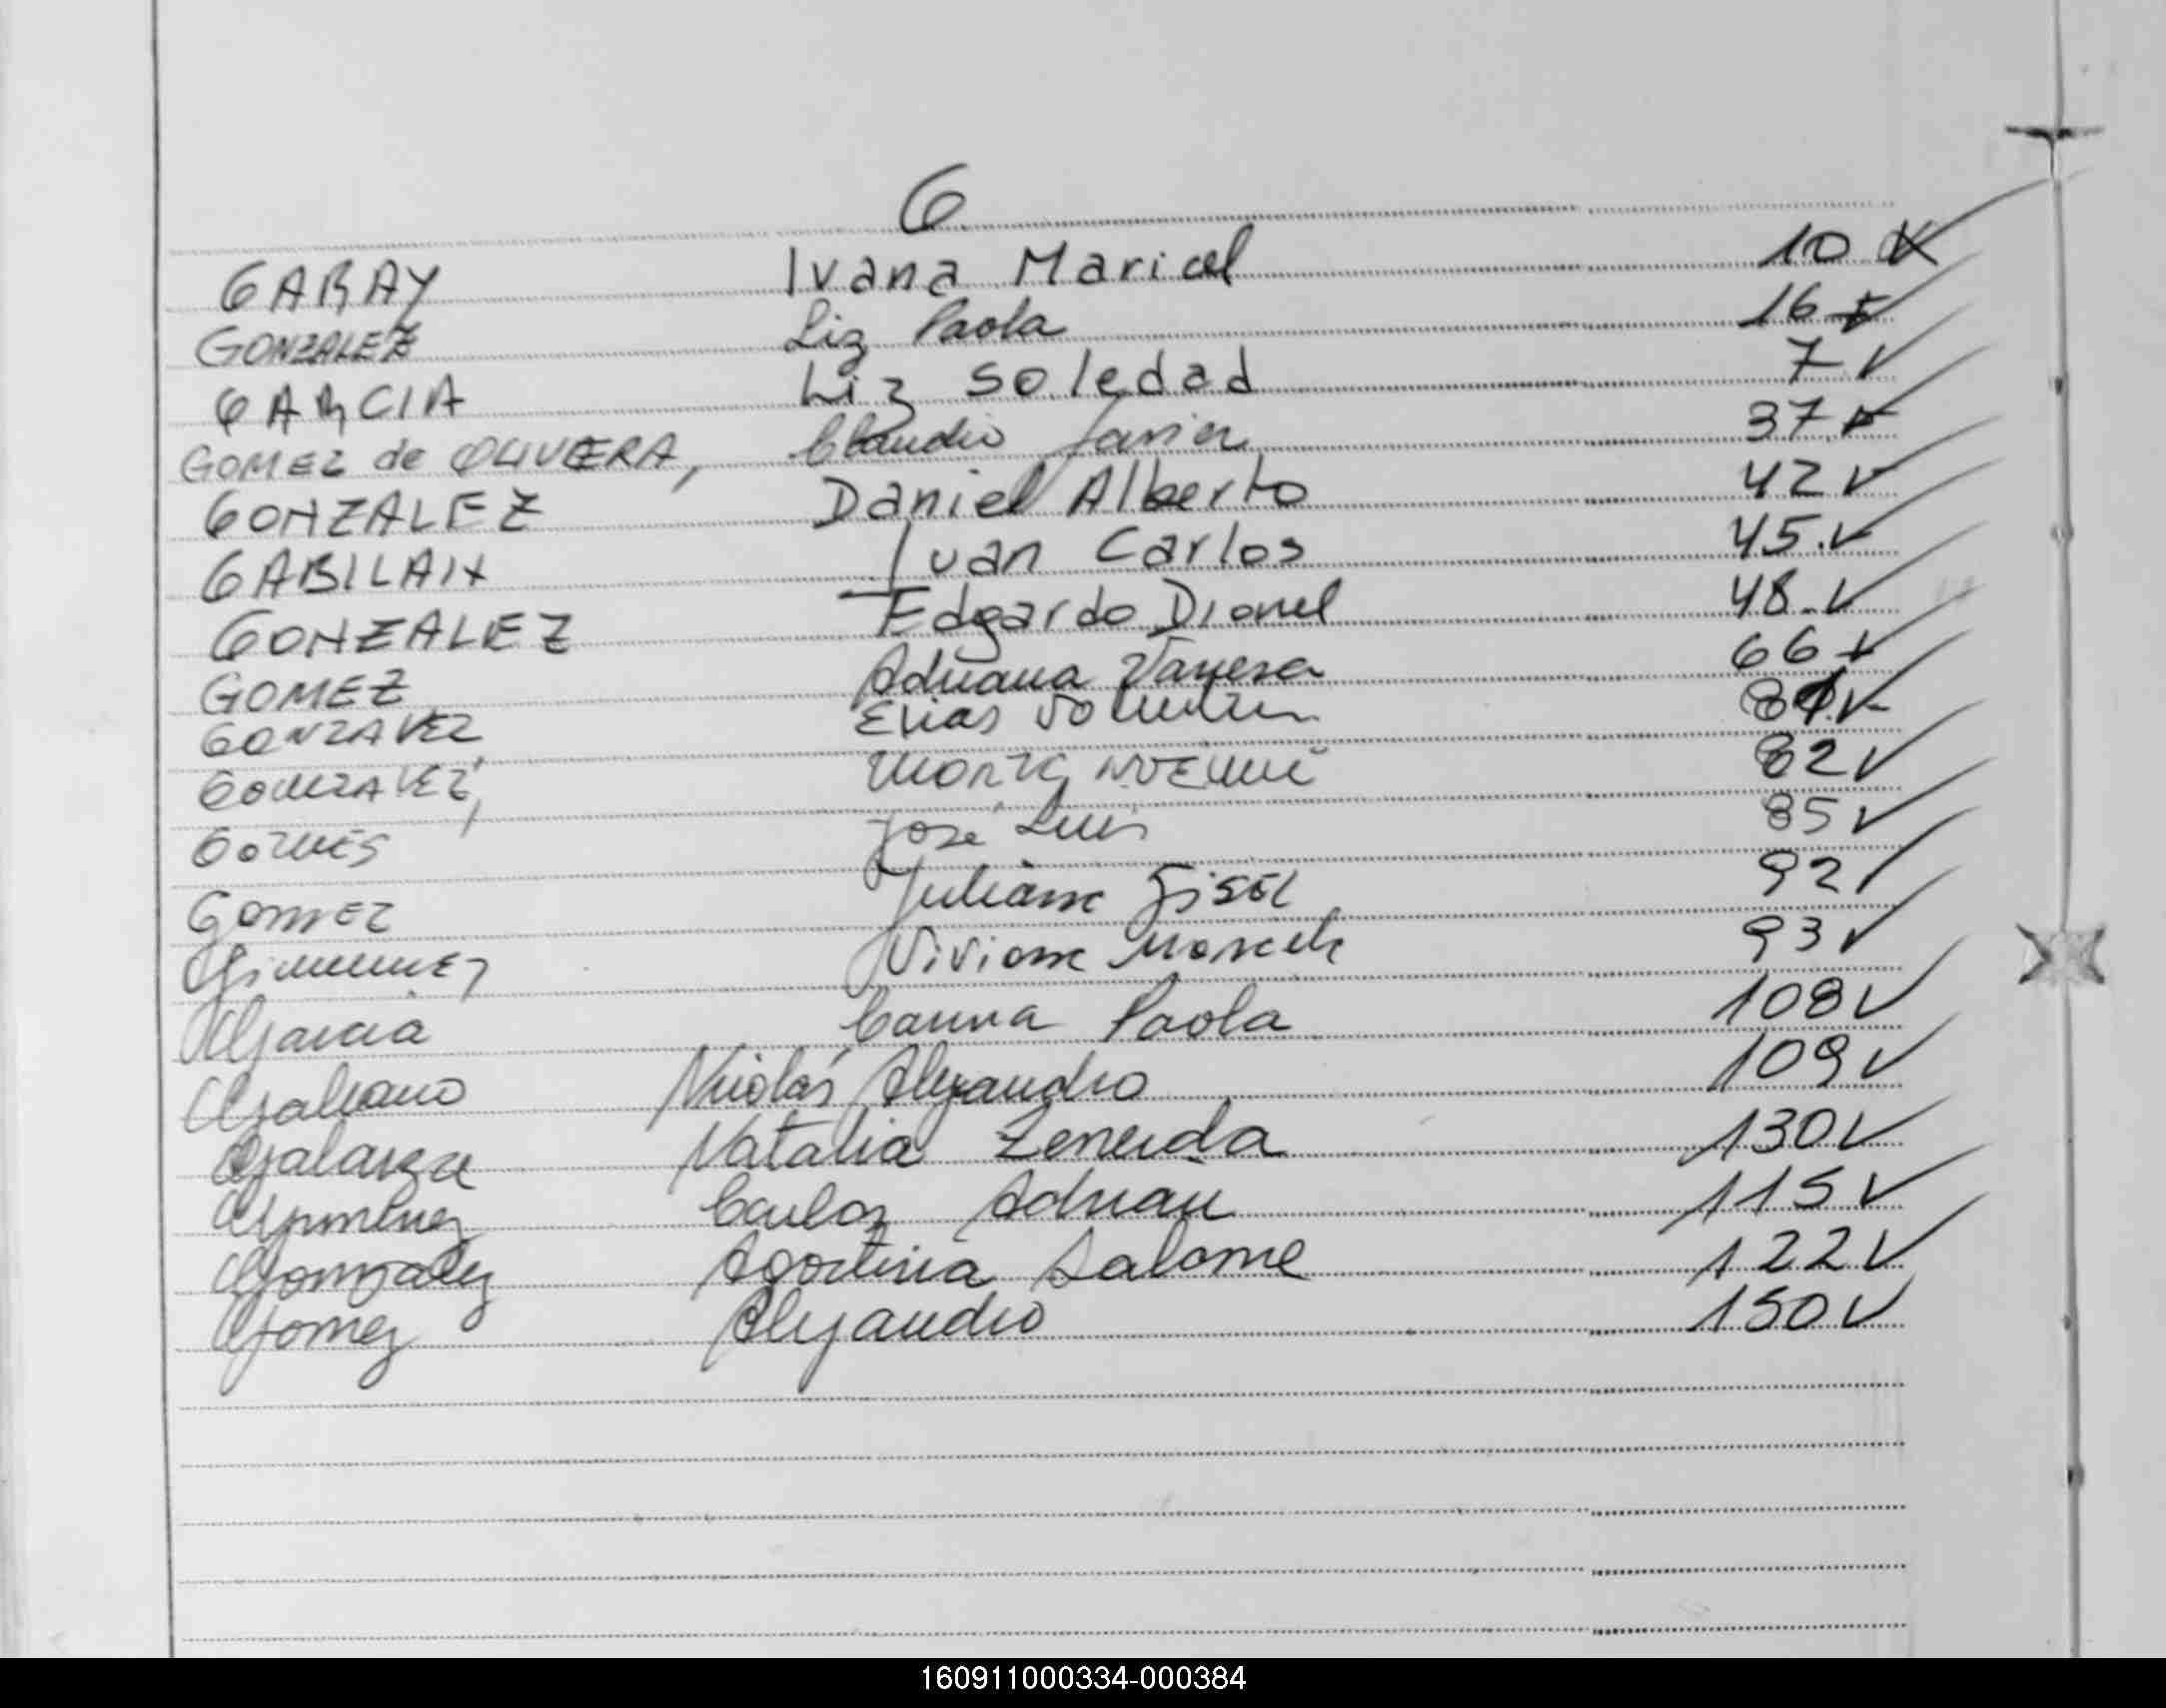 G
GARAY Ivana Maricel 10
GONZALEZ Liz Paola 16
GARCIA Liz Soledad 7
GOMEZ de OLIVERA, Claudio Javier 37
GONZALEZ Daniel Alberto 42
GABILAN Juan Carlos 45
GONZALEZ Edgardo Dionel 48
GOMEZ Adriana Vanesa 66
GONZALEZ Elias 81
GONZALEZ, Noemi 82
José Luis 85
GOMEZ Juliana Gisel 92
Gimenez Viviana Marcela 93
Garcia Carina Paola 108
Galeano Nicolás Alejandro 109
Galarza Natalia Zeneida 130
Gimenez Carlos Adrian 115
Gonzalez Agostina Salome 122
Gomez Alejandro 150
160911000334-000384